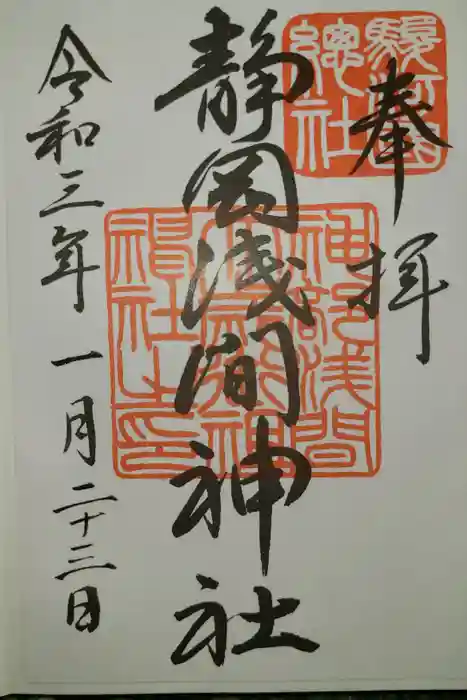 奉拝
駿河國
總社
静岡浅間神社
神部浅間
大歳御祖
神社之印
令和三年一月二十三日